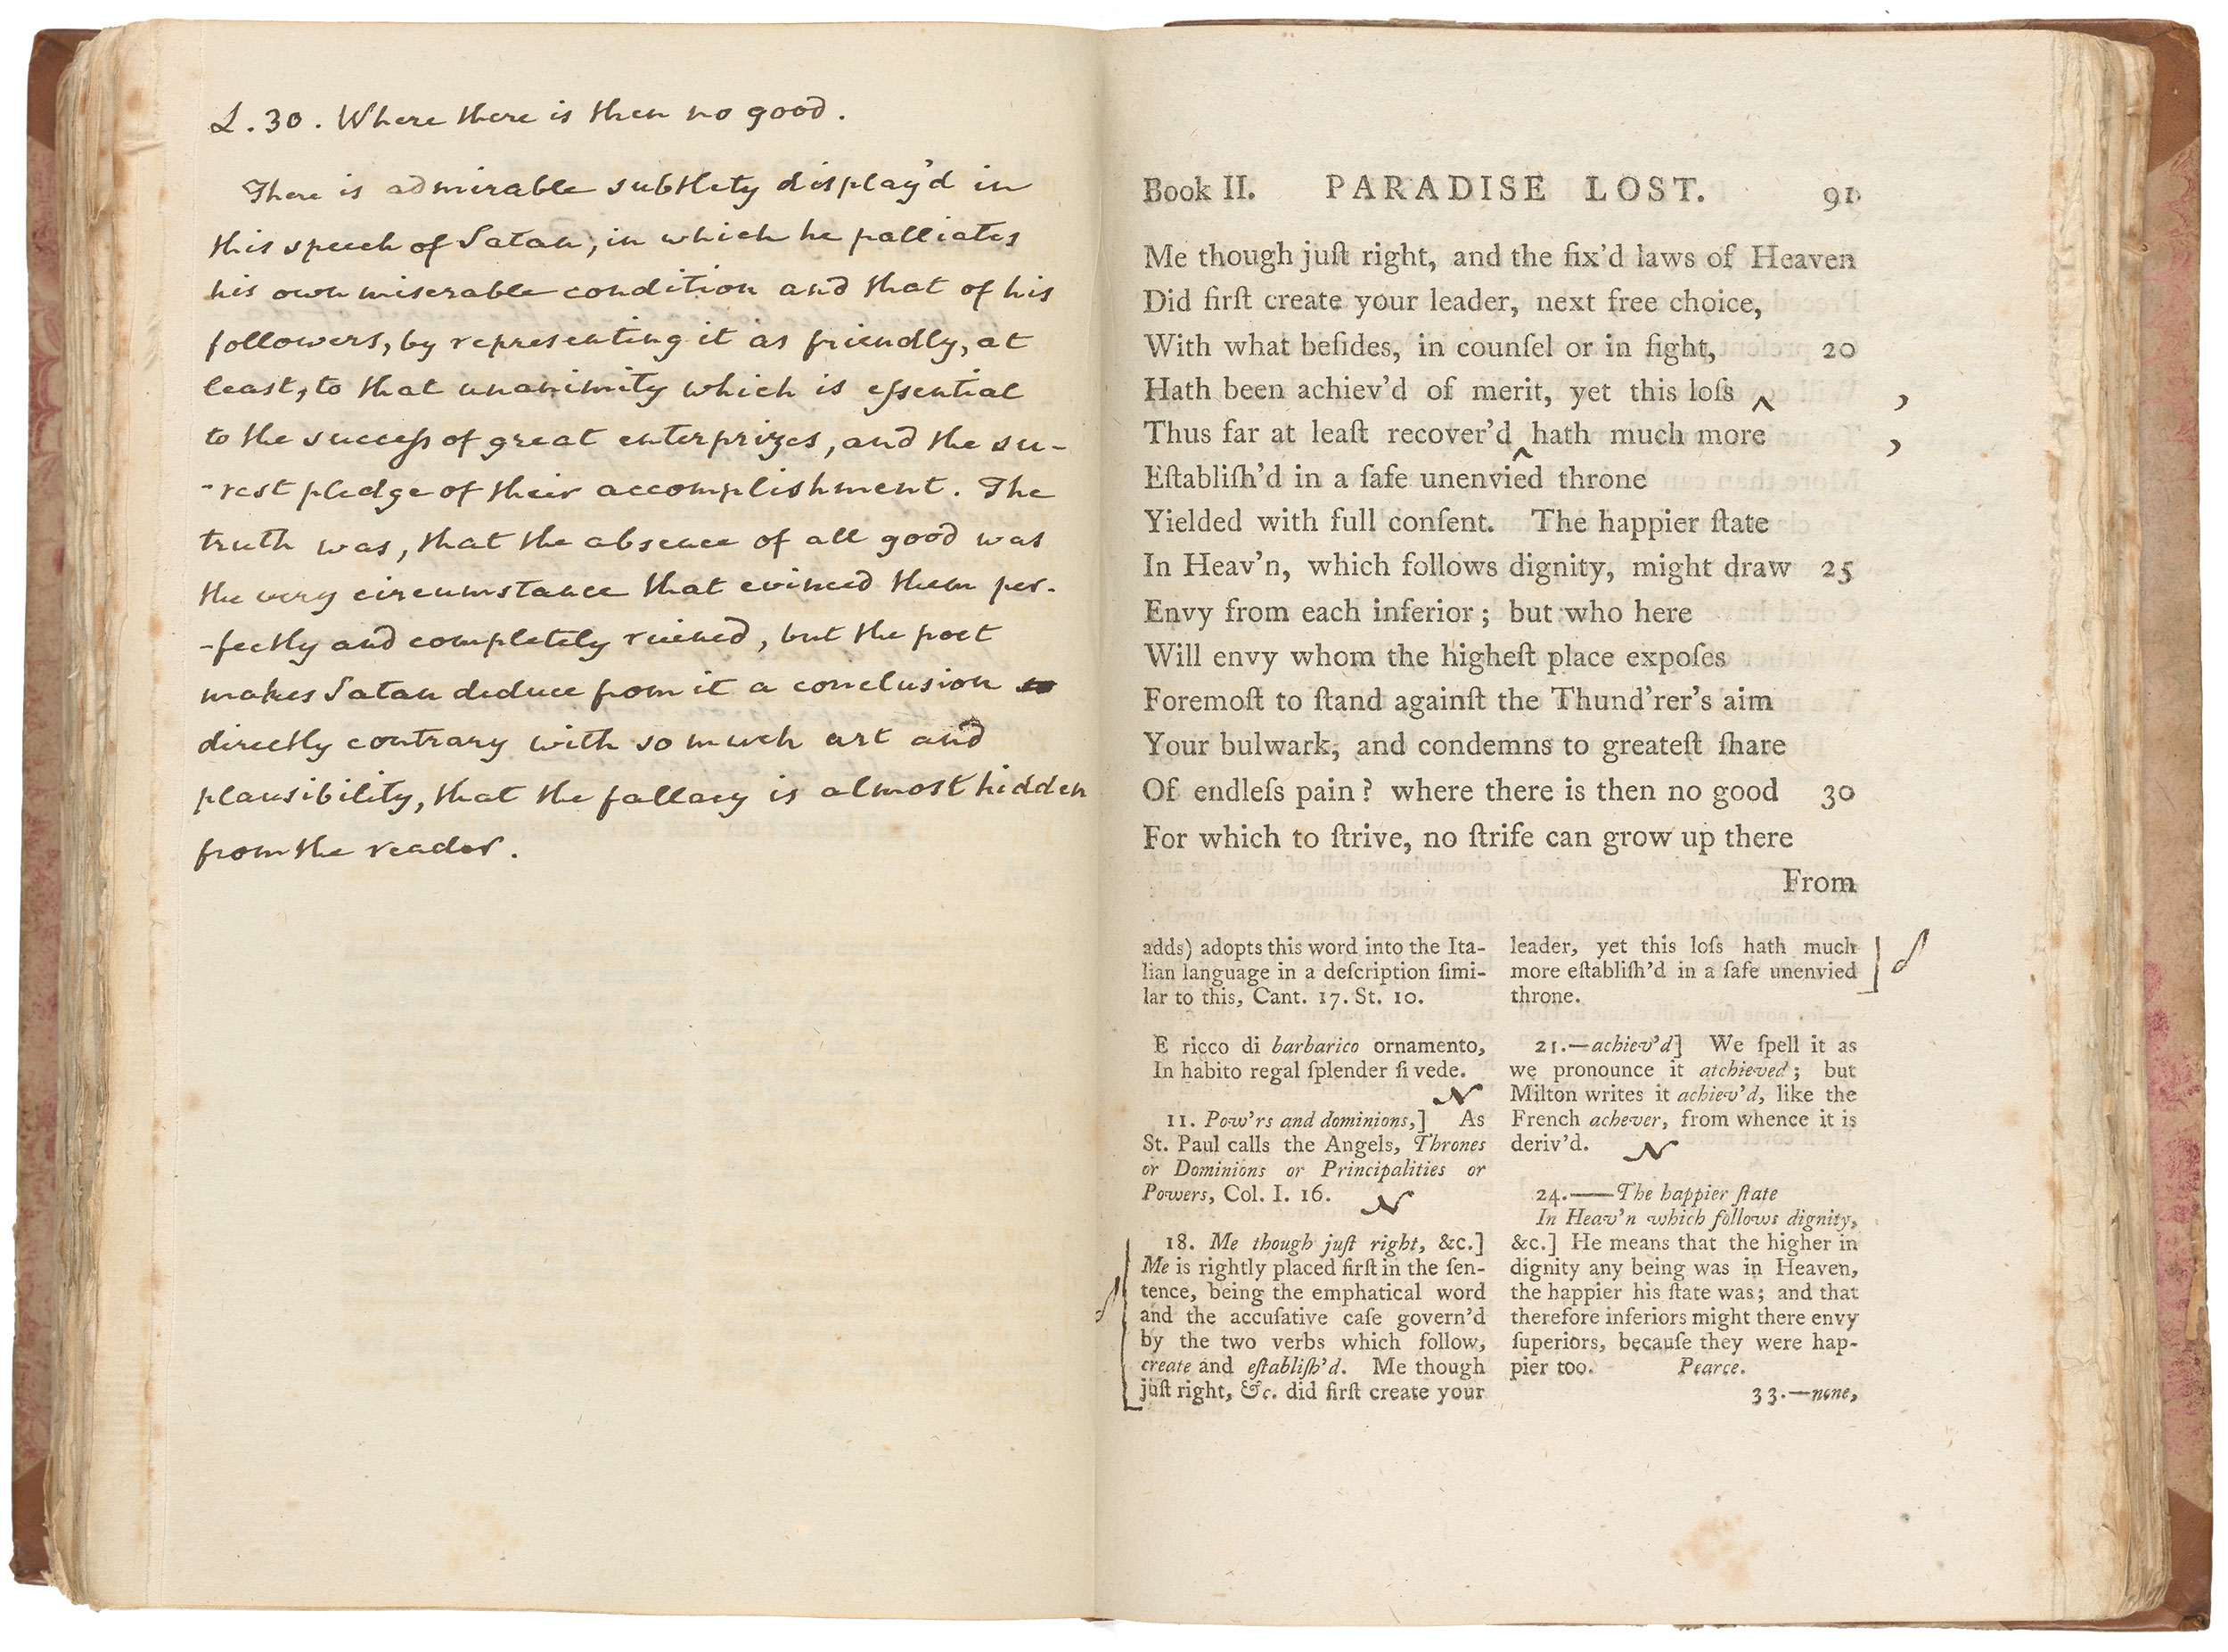 L. 30. Where there is then no good.
There is admirable subtlety display'd in
this speech of Satan, in which he palliates
his own miserable condition and that of his
followers, by representing it as friendly, at
least, to that unanimity which is eſsential
to the succeſs of great enterprizes, and the su-
-rest pledge of their accomplishment. The
truth was, that the absence of all good was
the very circumstance that evinced them per-
-fectly and completely ruined, but the poet
makes Satan deduce from it a conclusion
directly contrary with so much art and
plausibility, that the fallacy is almost hidden
from the reader.
Book II. PARADISE LOST. 91
Me though juſt right, and the fix'd laws of Heaven
Did firſt create your leader, next free choice,
With what beſides, in counſel or in fight, 20
Hath been achiev'd of merit, yet this loſs ‸ ,
Thus far at leaſt recover'd ‸ hath much more ,
Eſtabliſh'd in a ſafe unenvied throne
Yielded with full conſent. The happier ſtate
In Heav'n, which follows dignity, might draw 25
Envy from each inferior; but who here
Will envy whom the higheſt place expoſes
Foremoſt to ſtand againſt the Thund'rer's aim
Your bulwark, and condemns to greateſt ſhare
Of endleſs pain? where there is then no good 30
For which to ſtrive, no ſtrife can grow up there
From
adds) adopts this word into the Ita-
lian language in a deſcription ſimi-
lar to this, Cant. 17. St. 10.
E ricco di barbarico ornamento,
In habito regal ſplender ſi vede.
N
11. Pow'rs and dominions,] As
St. Paul calls the Angels, Thrones
or Dominions or Principalities or
Powers, Col. I. 16. N
18. Me though juſt right, &c.]
Me is rightly placed firſt in the ſen-
tence, being the emphatical word
and the accuſative caſe govern'd
by the two verbs which follow,
create and eſtabliſh'd. Me though
juſt right, &c. did firſt create your
leader, yet this loſs hath much
more eſtabliſh'd in a ſafe unenvied
throne.
21.—achiev'd] We ſpell it as
we pronounce it atchieved; but
Milton writes it achiev'd, like the
French achever, from whence it is
deriv'd. N
24.——The happier ſtate
In Heav'n which follows dignity,
&c.] He means that the higher in
dignity any being was in Heaven,
the happier his ſtate was; and that
therefore inferiors might there envy
ſuperiors, becauſe they were hap-
pier too. Pearce.
33.—none,